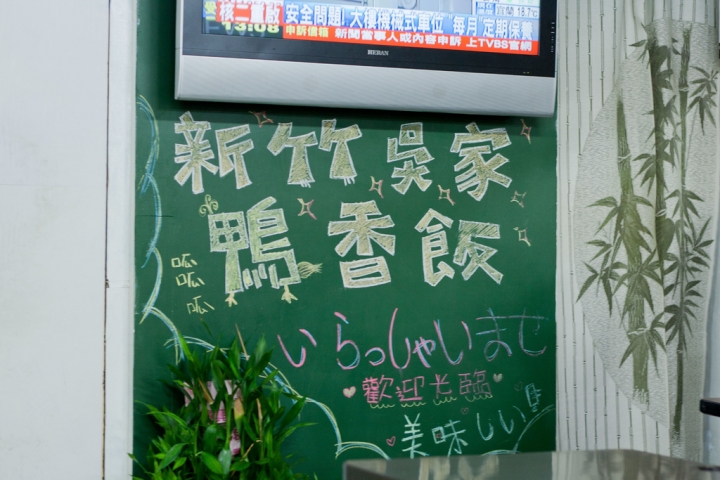 核二重啟 安全問題! 大樓機械式車位 每月 定期保養
13:08 申訴信箱 新聞當事人或內容申訴 上TVBS官網
新竹吳家
鴨香飯
呱
呱
呱
いらっしゃいませ
歡迎光臨
美味しい!!